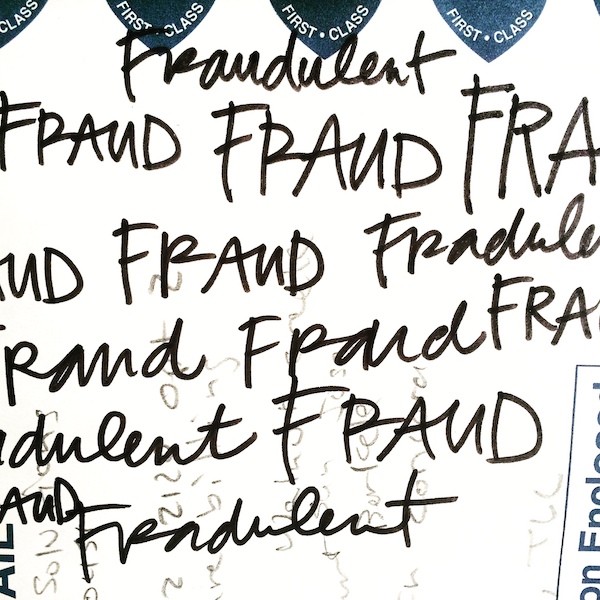 FIRST • CLASS FIRST • CLASS FIRST • CLASS
Fraudulent
FRAUD FRAUD FRA
UD FRAUD Fradule
Fraud Fraud FRAU
dulent FRAUD
AUD Fradulent
AIL
on Enclosed